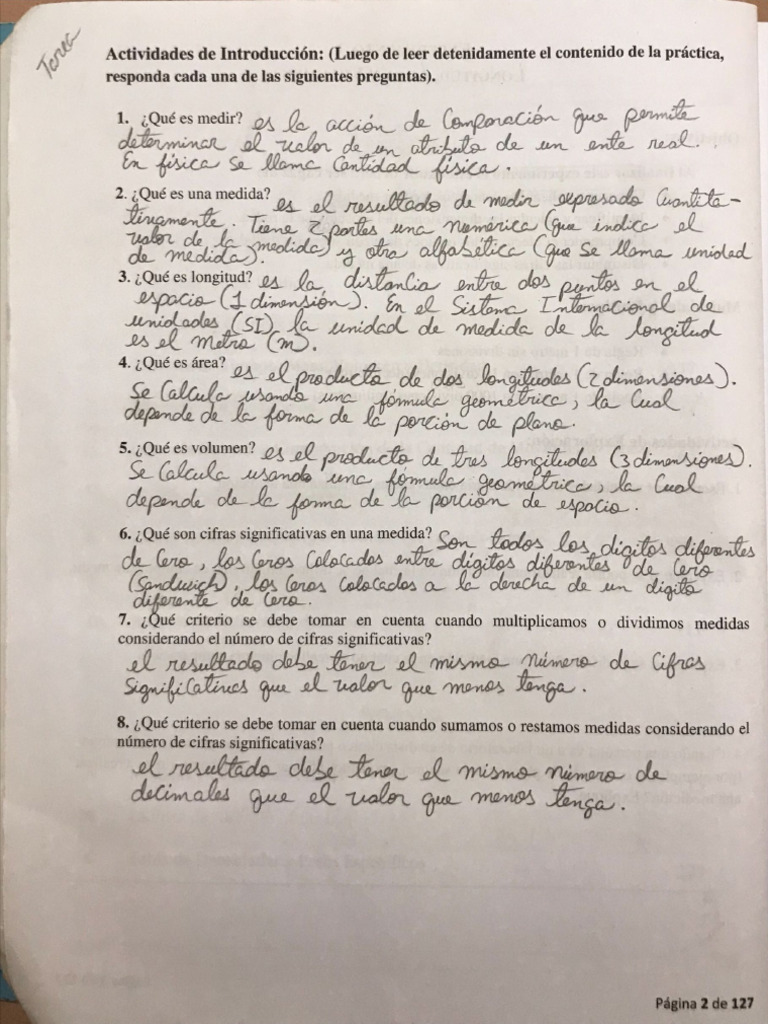 Tarea
Actividades de Introducción: (Luego de leer detenidamente el contenido de la práctica,
responda cada una de las siguientes preguntas).
1. ¿Qué es medir? es la acción de Comparación que permite
determinar el valor de un atributo de un ente real.
En física se llama Cantidad física.
2. ¿Qué es una medida? es el resultado de medir expresado Cuantita-
tivamente. Tiene 2 partes una numérica (que indica el
valor de la medida) y otra alfabética (que se llama unidad
de medida).
3. ¿Qué es longitud? es la distancia entre dos puntos en el
espacio (1 dimensión). En el Sistema Internacional de
unidades (SI) la unidad de medida de la longitud
es el Metro (m).
4. ¿Qué es área? es el producto de dos longitudes (2 dimensiones).
Se Calcula usando una fórmula geométrica, la Cual
depende de la forma de la porción de plano.
5. ¿Qué es volumen? es el producto de tres longitudes (3 dimensiones).
Se Calcula usando una fórmula geométrica, la Cual
depende de la forma de la porción de espacio.
6. ¿Qué son cifras significativas en una medida? Son todos los dígitos diferentes
de Cero, los Ceros Colocados entre dígitos diferentes de Cero
(Sandwich), los Ceros Colocados a la derecha de un dígito
diferente de Cero.
7. ¿Qué criterio se debe tomar en cuenta cuando multiplicamos o dividimos medidas
considerando el número de cifras significativas?
el resultado debe tener el mismo número de Cifras
Significativas que el valor que menos tenga.
8. ¿Qué criterio se debe tomar en cuenta cuando sumamos o restamos medidas considerando el
número de cifras significativas?
el resultado debe tener el mismo número de
decimales que el valor que menos tenga.
Página 2 de 127